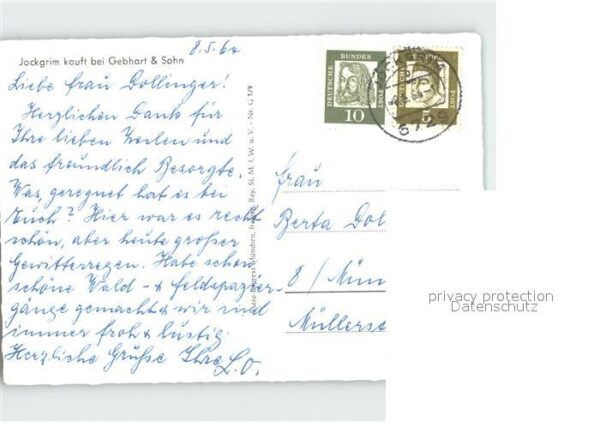 8.5.64
Jockgrim kauft bei Gebhart & Sohn
Liebe Frau Dollinger!
Herzlichen Dank für
Ihre lieben Zeilen und
das freundlich Besorgte.
Was, geregnet hat es bei
Euch? Hier war es recht
schön, aber heute großer
Gewitterregen. Habe schon
schöne Wald- & Feldspazier-
gänge gemacht & wir sind
immer froh & lustig.
Herzliche Grüße Ihre L.O.
Bay. St. M. f. W. u. V. - Nr. G 7/9
DEUTSCHE BUNDES POST
10
DEUTSCHE BUNDES POST
5
6729
Frau
Berta Dol
8 / Mün
Müllerst
privacy protection
Datenschutz